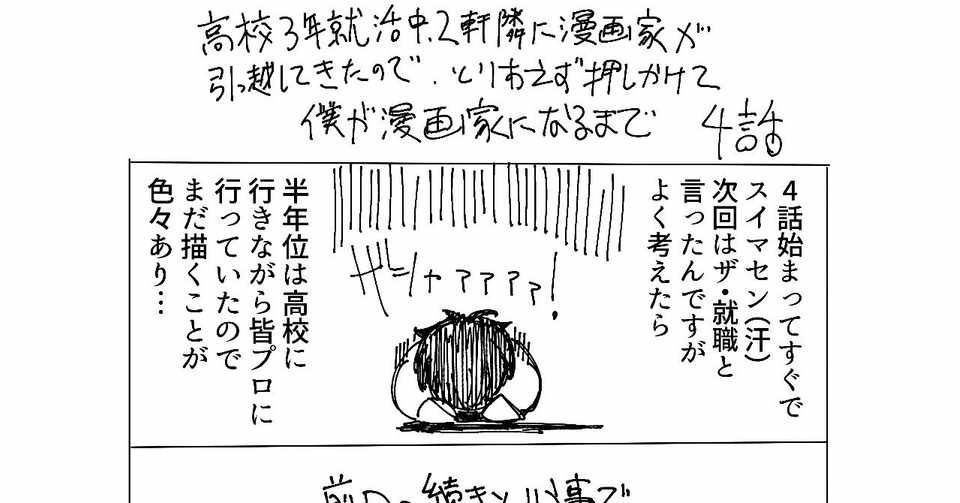 高校3年就活中、2軒隣に漫画家が
引っ越してきたので、とりあえず押しかけて
僕が漫画家になるまで 4話
4話始まってすぐで
スイマセン(汗)
次回はザ・就職と
言ったんですが
よく考えたら
ザシャァァァァ!
半年位は高校に
行きながら皆プロに
行っていたので
まだ描くことが
色々あり…